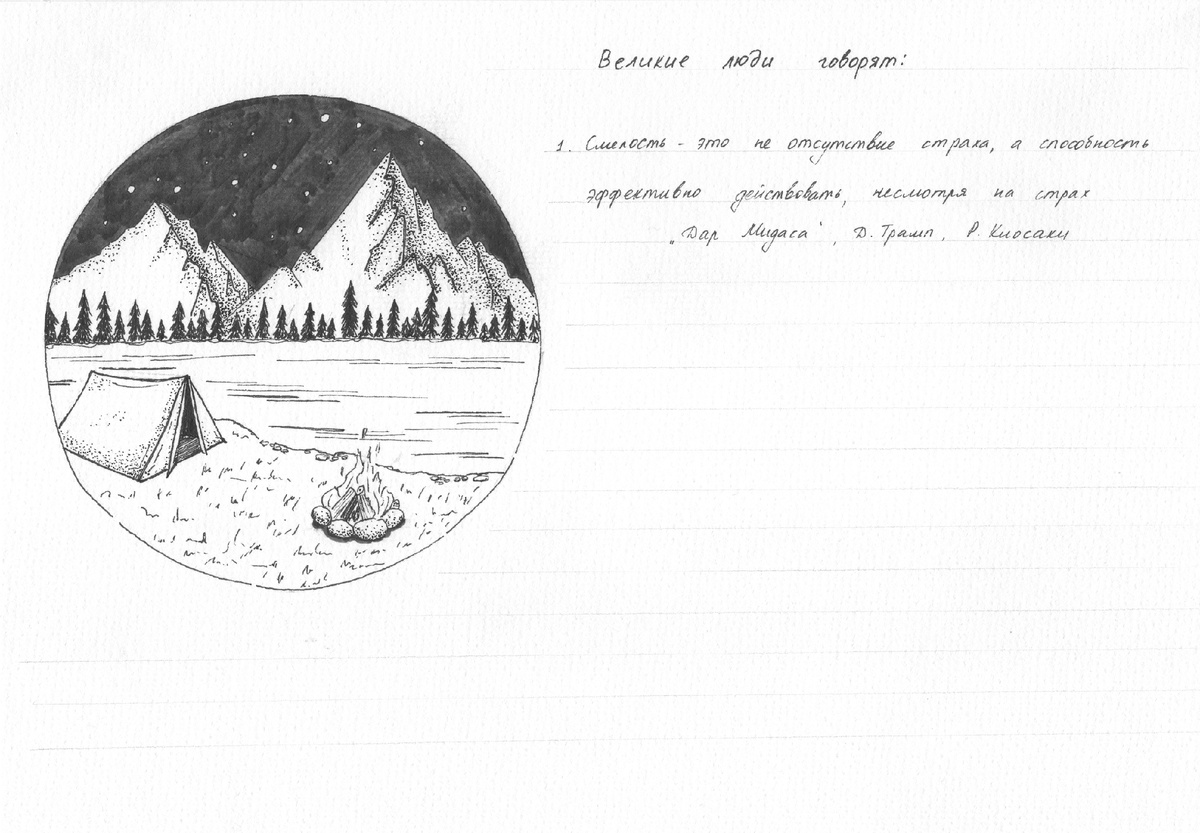 Великие люди говорят:
1. Смелость - это не отсутствие страха, а способность
эффективно действовать, несмотря на страх
„Дар Мидаса", Д. Трамп, Р. Киосаки